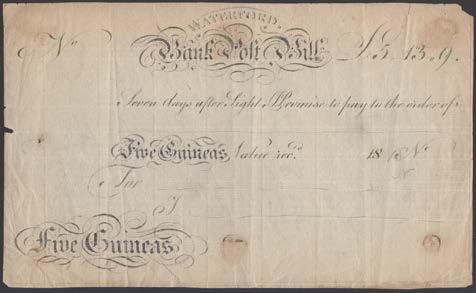 WATERFORD.
No Bank Post Bill £5..13..9.
Seven days after Sight I Promise to pay to the order of
Five Guineas Value recd. 18 No
For
I
Five Guineas